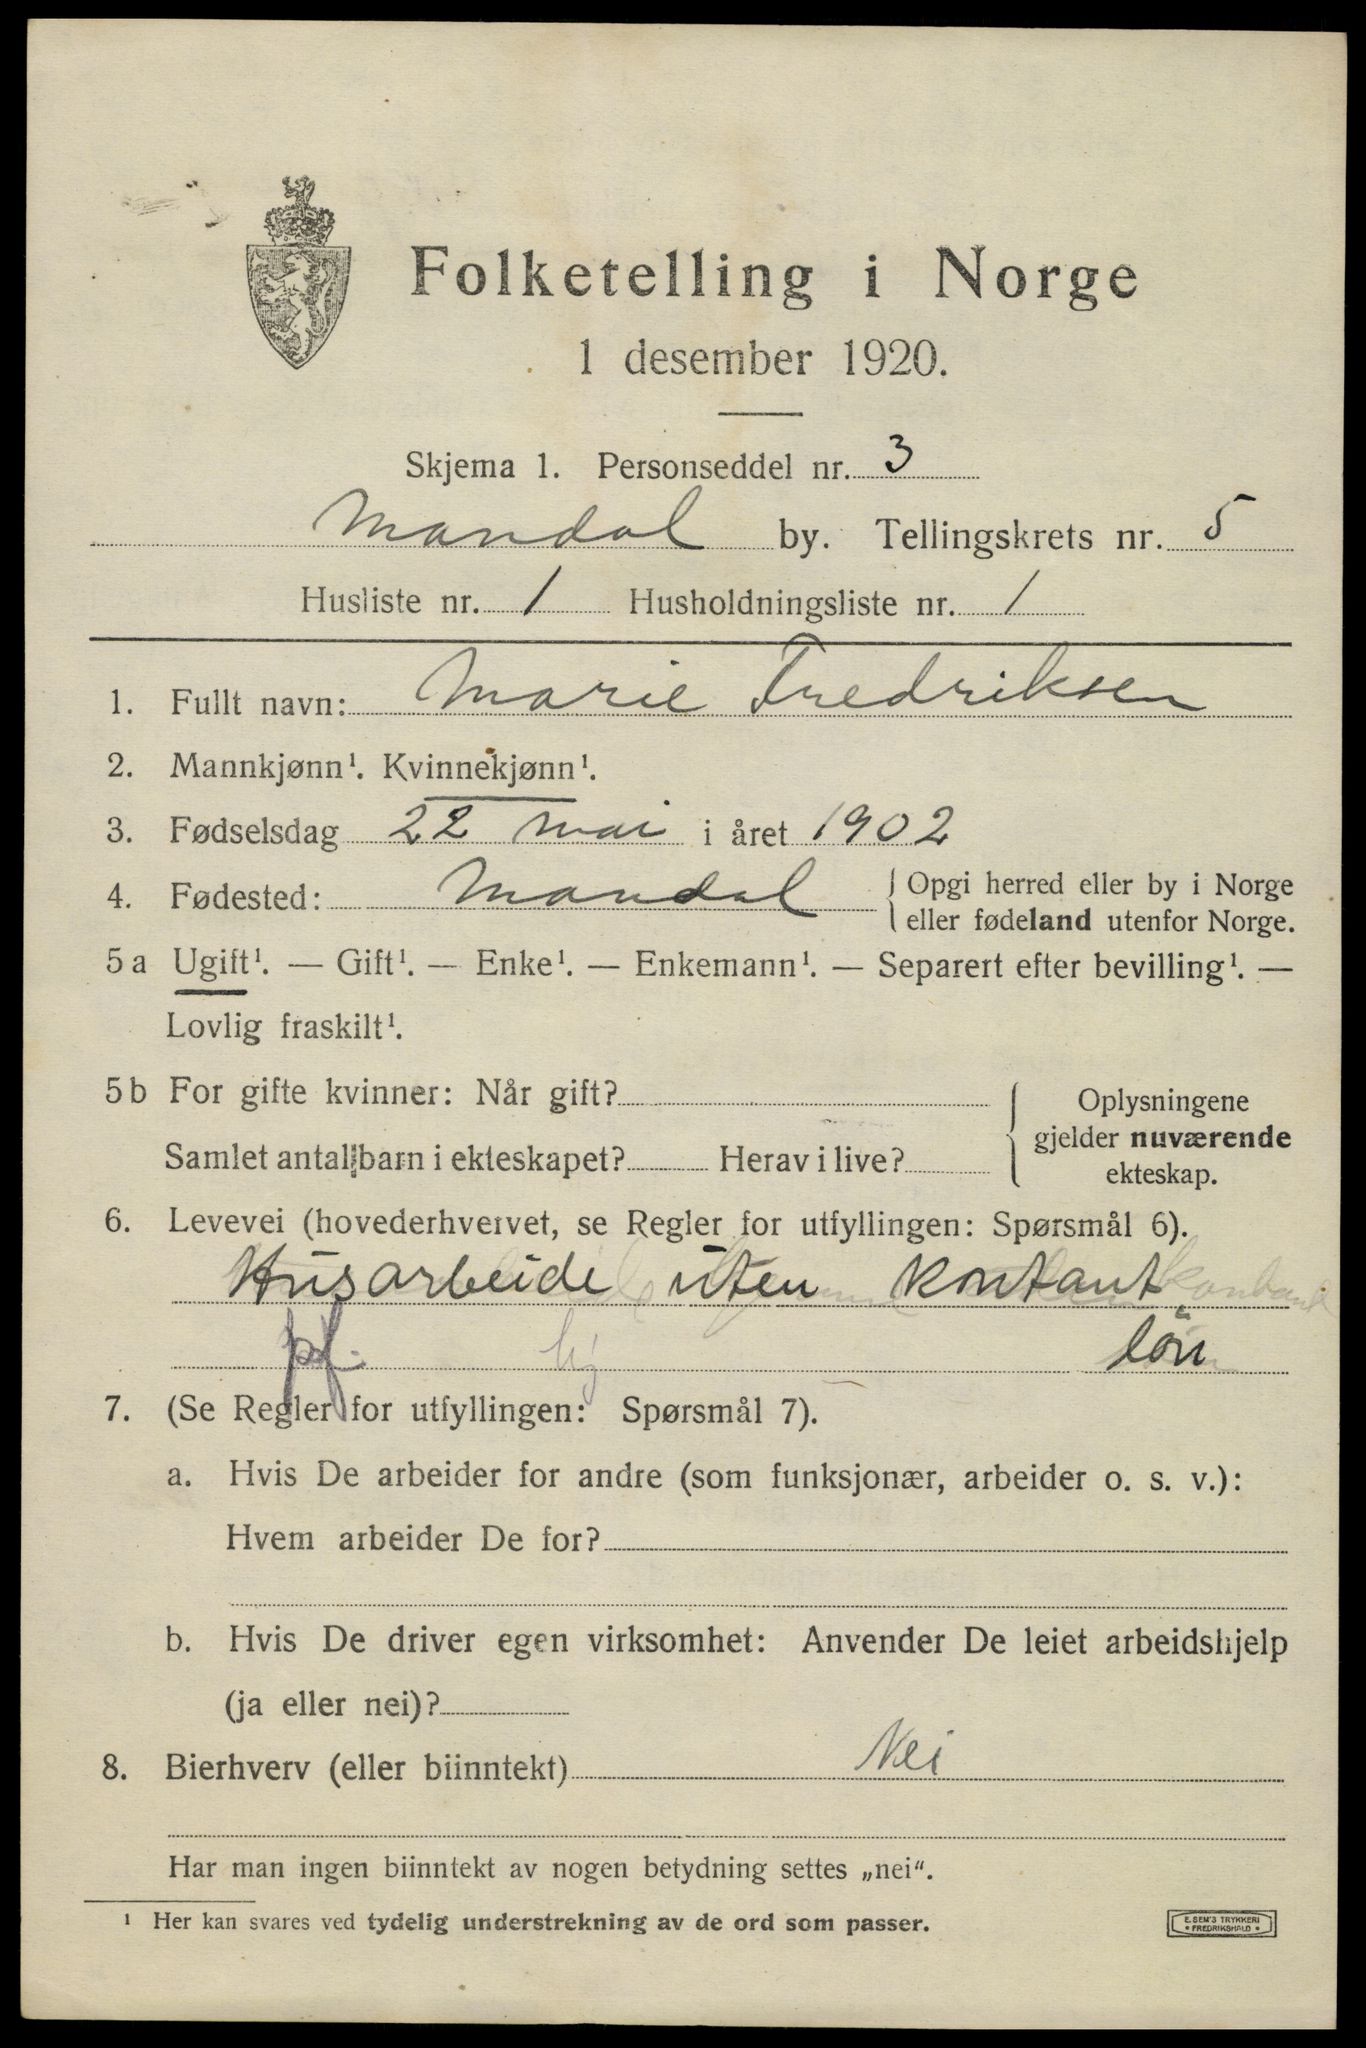 Folketelling i Norge
1 desember 1920.
Skjema 1. Personseddel nr. 3
Mandal by. Tellingskrets nr. 5
Husliste nr. 1 Husholdningsliste nr. 1
1. Fullt navn: Marie Fredriksen
2. Mannkjønn¹. Kvinnekjønn¹.
3. Fødselsdag 22 mai i året 1902
4. Fødested: Mandal { Opgi herred eller by i Norge
eller fødeland utenfor Norge.
5 a Ugift¹. — Gift¹. — Enke¹. — Enkemann¹. — Separert efter bevilling¹. —
Lovlig fraskilt¹.
5 b For gifte kvinner: Når gift?
Samlet antall barn i ekteskapet? Herav i live?
{ Oplysningene
gjelder nuværende
ekteskap.
6. Levevei (hovederhvervet, se Regler for utfyllingen: Spørsmål 6).
Husarbeide uten kontant
lön
pf.
7. (Se Regler for utfyllingen: Spørsmål 7).
a. Hvis De arbeider for andre (som funksjonær, arbeider o. s. v.):
Hvem arbeider De for?
b. Hvis De driver egen virksomhet: Anvender De leiet arbeidshjelp
(ja eller nei)?
8. Bierhverv (eller biinntekt) Nei
Har man ingen biinntekt av nogen betydning settes „nei“.
¹ Her kan svares ved tydelig understrekning av de ord som passer.
E. SEM'S TRYKKERI
* FREDRIKSHALD *